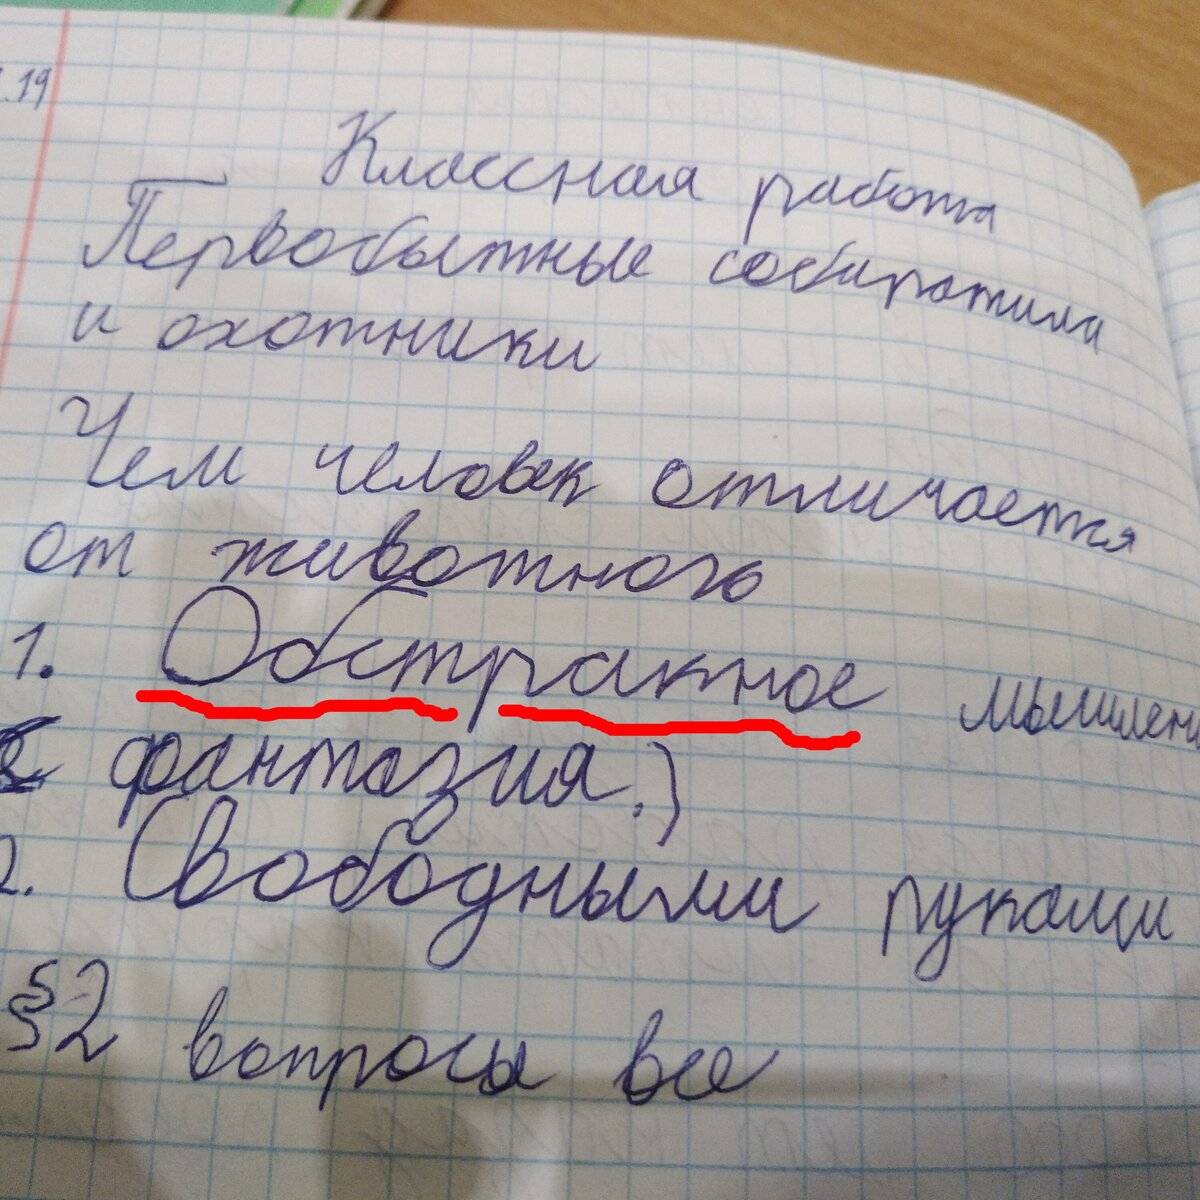 .19
Классная работа
Первобытные собиратили
и охотники
Чем человек отличается
от животного
1. Обстракное мышлени
фантазия.)
2. Свободными руками
§2 вопросы все